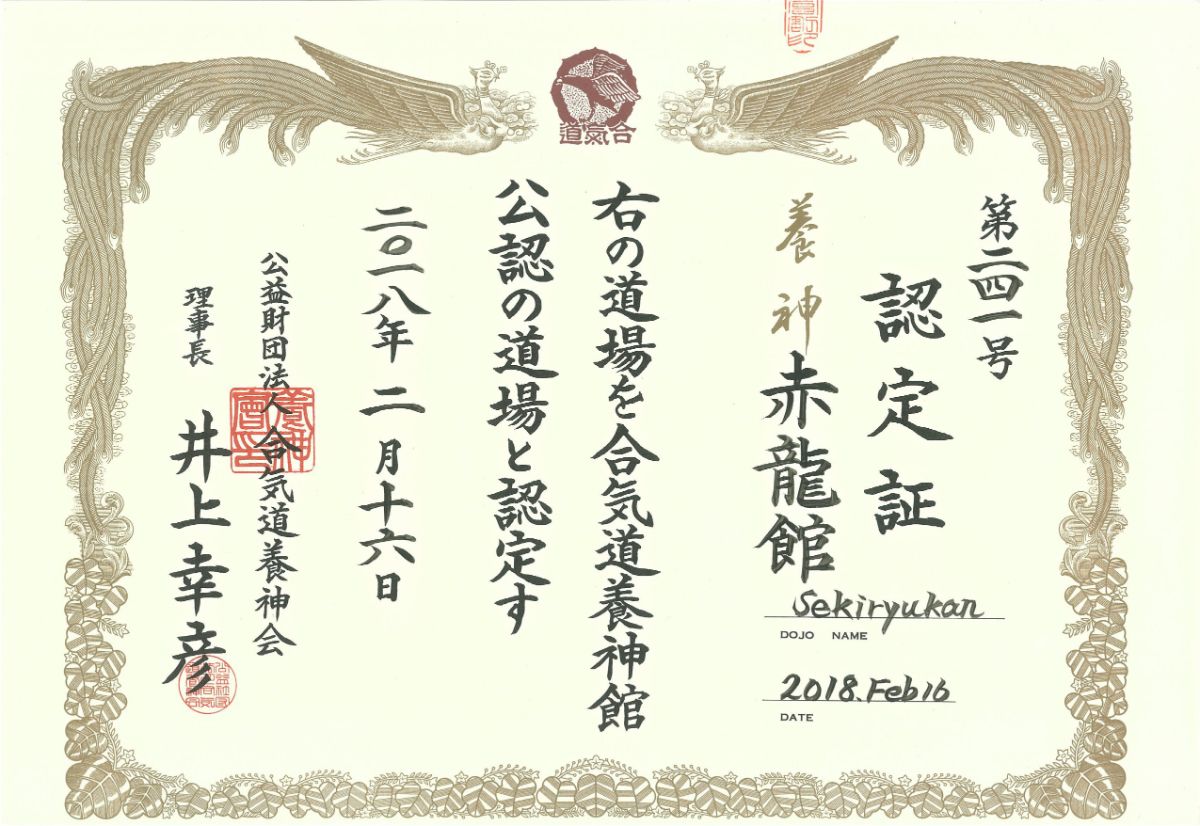 道氣合
第二四一号
認定証
養神赤龍館
Sekiryukan
DOJO NAME
2018.Feb16
DATE
右の道場を合気道養神館
公認の道場と認定す
二〇一八年二月十六日
公益財団法人合気道養神会
理事長 井上幸彦